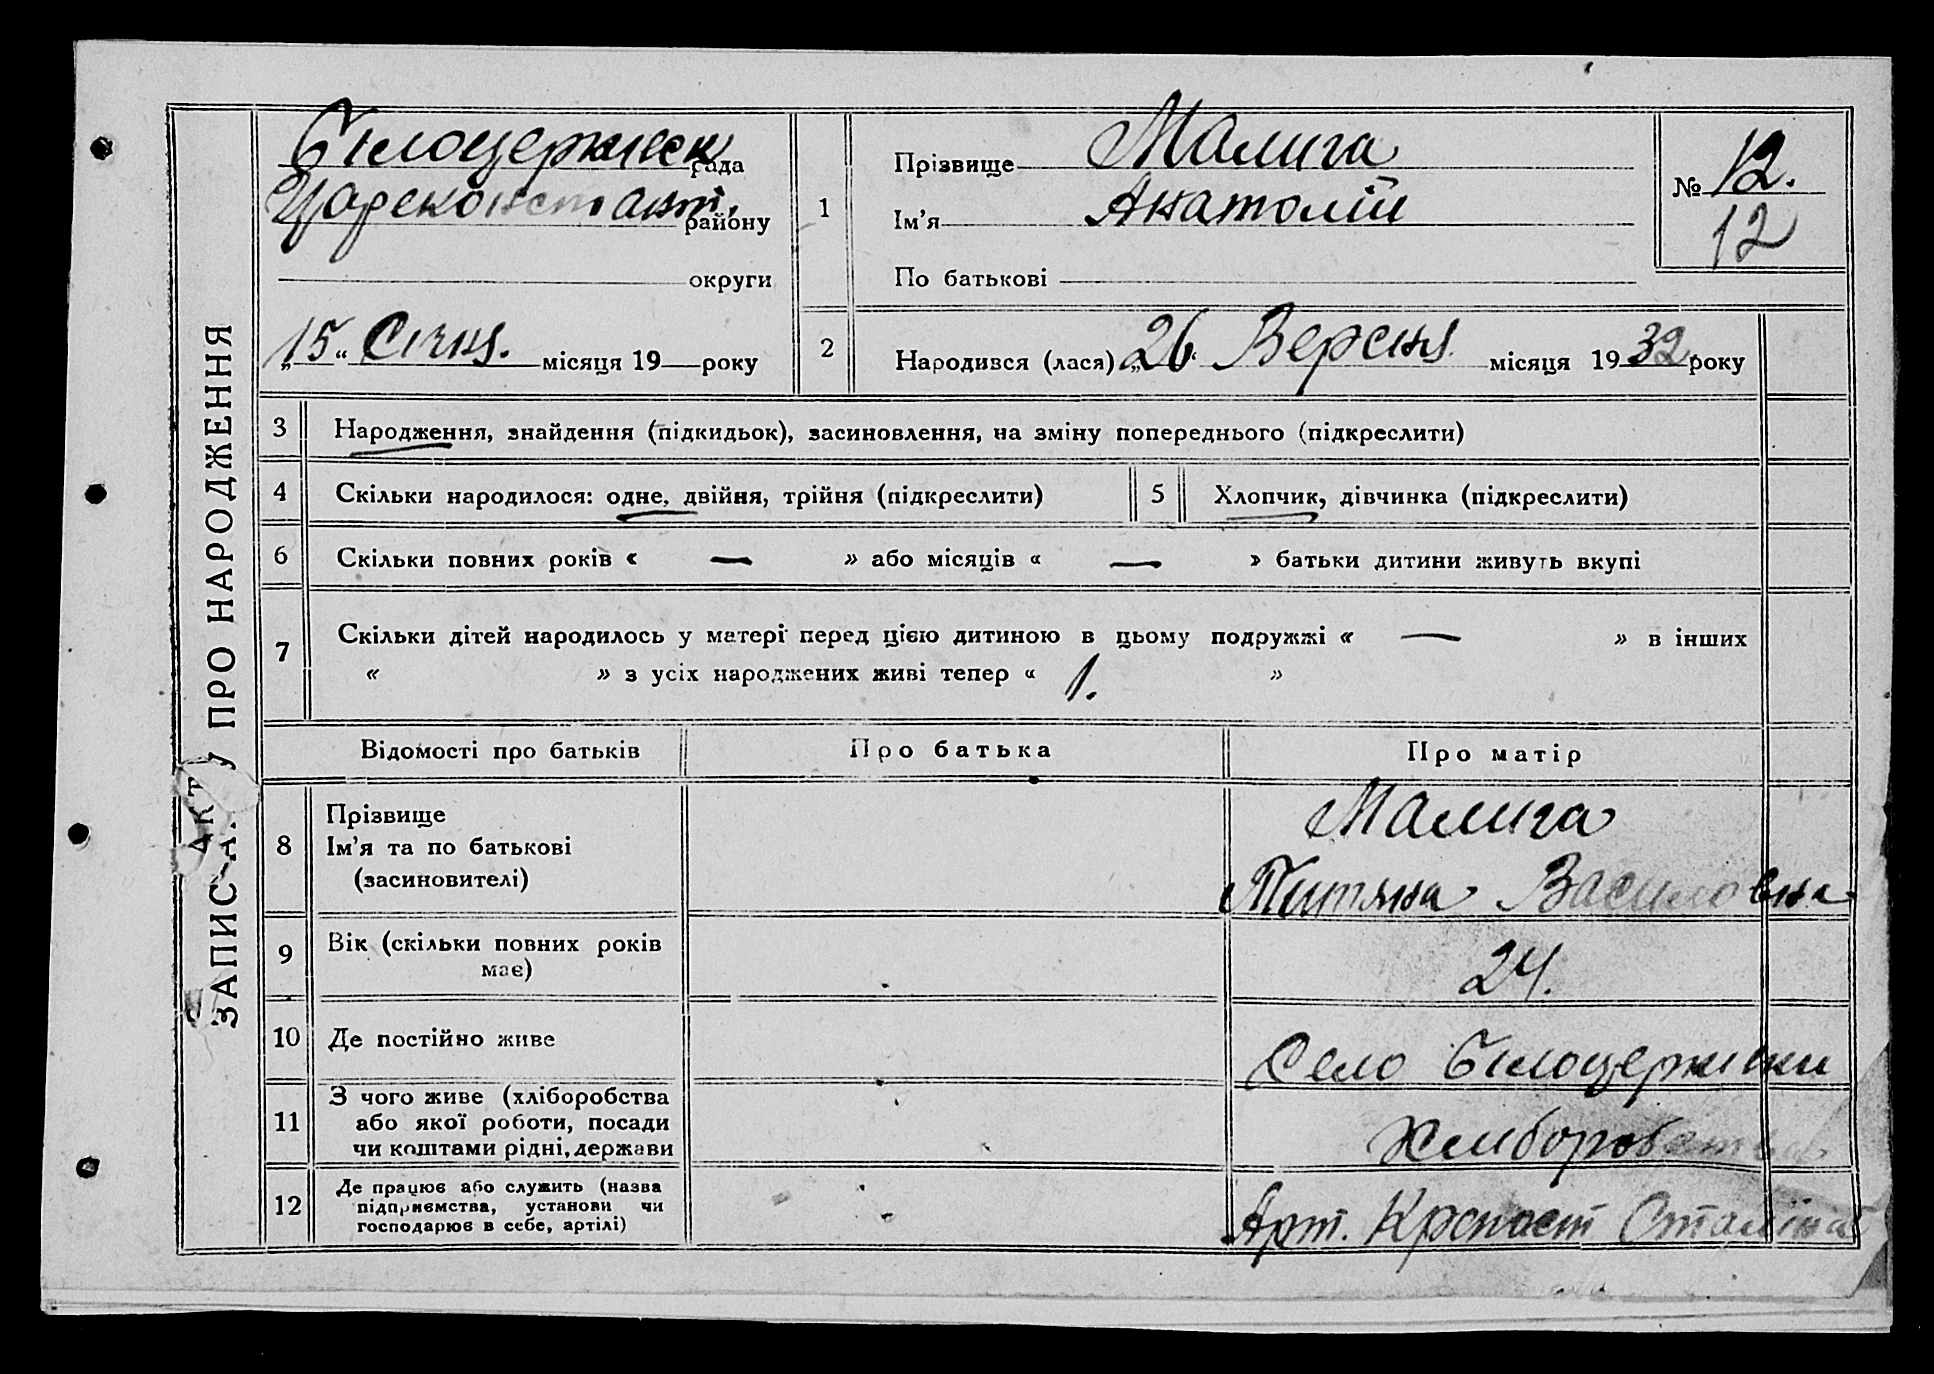 ЗАПИС АКТУ ПРО НАРОДЖЕННЯ
Білоцерківск рада
Цареконстант. району
округи
„15“ Січня. місяця 19 року
1
Прізвище Малига
Ім’я Анатолій
По батькові
№ 12.
12
2
Народився (лася) „26“ Вересня місяця 1932 року
3 Народження, знайдення (підкидьок), засиновлення, на зміну попереднього (підкреслити)
4 Скільки народилося: одне, двійня, трійня (підкреслити)
5 Хлопчик, дівчинка (підкреслити)
6 Скільки повних років « — » або місяців « — » батьки дитини живуть вкупі
7 Скільки дітей народилось у матері перед цією дитиною в цьому подружжі « — » в інших
« » з усіх народжених живі тепер « 1. »
Відомості про батьків Про батька Про матір
8 Прізвище
Ім’я та по батькові
(засиновителі)
Малига
Титяна Василовна
9 Вік (скільки повних років
має)
24.
10 Де постійно живе
Село Білоцерківки
11 З чого живе (хліборобства
або якої роботи, посади
чи коштами рідні, держави
Хлиборобства
12 Де працює або служить (назва
підприємства, установи чи
господарює в себе, артілі)
Арт. Сталіна